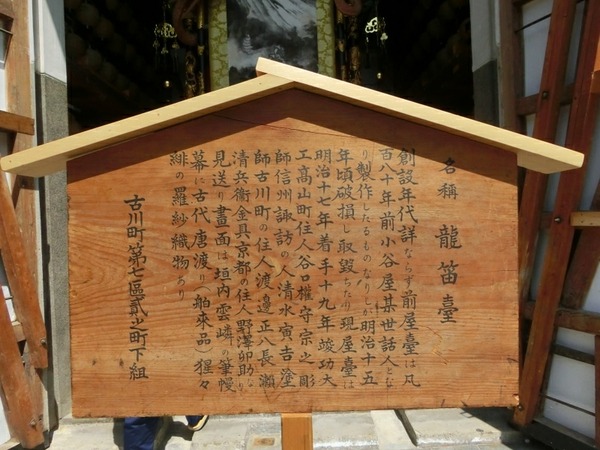 名稱 龍笛臺
創設年代詳ならず前屋臺は凡
百八十年前小谷屋某世話人とな
り製作したるものなりしが明治十五
年頃破損し取毀ちたり現屋臺は
明治十七年着手十九年竣功大
工高山町住人谷口權守宗之彫
師信州諏訪の人清水寅吉塗
師古川町の住人渡邉正八長瀬
清兵衛金具京都の住人野澤卯助なり
見送り畫面は垣内雲嶙の筆幔
幕に古代唐渡り（舶來品）猩々
緋の羅紗織物あり
古川町第七區貳之町下組